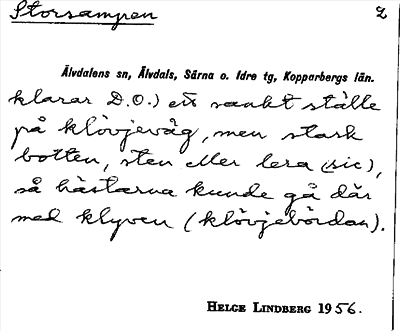 Storsampen 2
Älvdalens sn, Älvdals, Särna o. Idre tg, Kopparbergs län.
klarar D.O.) ett sankt ställe
på klövjeväg, men stark
botten, sten eller lera (sic),
så hästarna kunde gå där
med klyven (klövjebördan).
HELGE LINDBERG 1956.